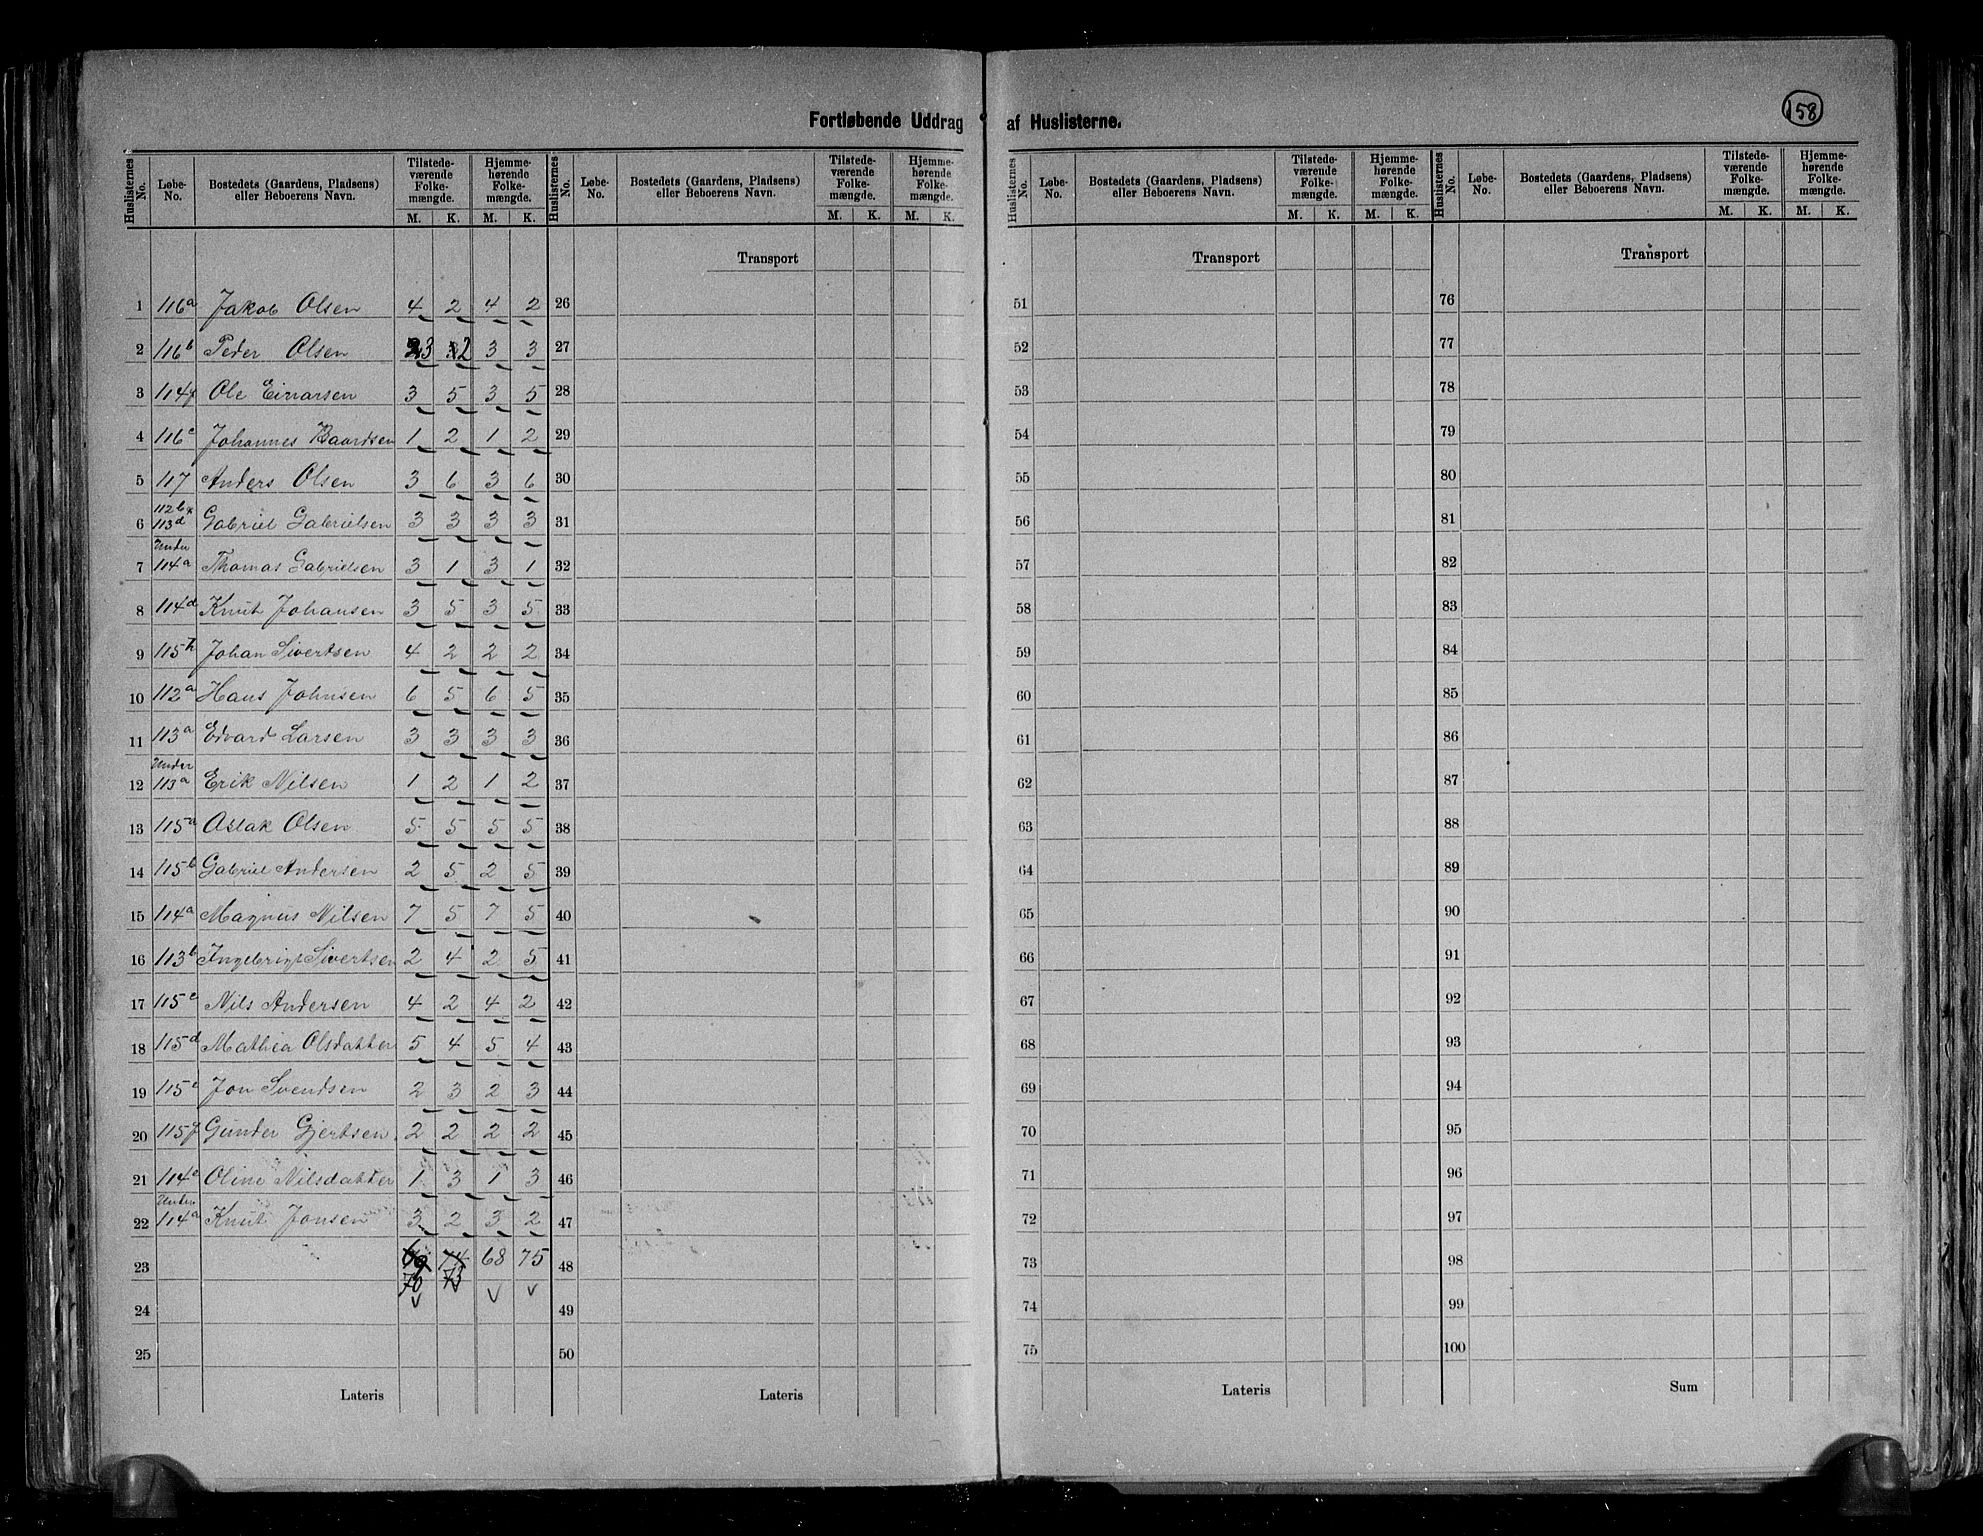 Fortløbende Uddrag af Huslisterne.
158
Huslisternes No. | Løbe-No. | Bostedets (Gaardens, Pladsens) eller Beboerens Navn. | Tilstedeværende Folkemængde. M. K. | Hjemmehørende Folkemængde. M. K.
Huslisternes No. | Løbe-No. | Bostedets (Gaardens, Pladsens) eller Beboerens Navn. | Tilstedeværende Folkemængde. M. K. | Hjemmehørende Folkemængde. M. K.
Huslisternes No. | Løbe-No. | Bostedets (Gaardens, Pladsens) eller Beboerens Navn. | Tilstedeværende Folkemængde. M. K. | Hjemmehørende Folkemængde. M. K.
Huslisternes No. | Løbe-No. | Bostedets (Gaardens, Pladsens) eller Beboerens Navn. | Tilstedeværende Folkemængde. M. K. | Hjemmehørende Folkemængde. M. K.
Transport Transport Transport
1 116a Jakob Olsen 4 2 4 2 26 51 76
2 116b Peder Olsen 3 2 3 3 27 52 77
3 114f Ole Einarsen 3 5 3 5 28 53 78
4 116c Johannes Baardsen 1 2 1 2 29 54 79
5 117 Anders Olsen 3 6 3 6 30 55 80
6 112b, 113d Gabriel Gabrielsen 3 3 3 3 31 56 81
7 Under 114a Thomas Gabrielsen 3 1 3 1 32 57 82
8 114d Knut Johansen 3 5 3 5 33 58 83
9 115h Johan Sivertsen 4 2 2 2 34 59 84
10 112a Hans Johnsen 6 5 6 5 35 60 85
11 113a Edvard Larsen 3 3 3 3 36 61 86
12 Under 113a Erik Nilsen 1 2 1 2 37 62 87
13 115a Aslak Olsen 5 5 5 5 38 63 88
14 115b Gabriel Andersen 2 5 2 5 39 64 89
15 114a Magnus Nilsen 7 5 7 5 40 65 90
16 113b Ingebrigt Sivertsen 2 4 2 5 41 66 91
17 115c Nils Andersen 4 2 4 2 42 67 92
18 115d Mathea Olsdatter 5 4 5 4 43 68 93
19 115e Jon Svendsen 2 3 2 3 44 69 94
20 115f Gunder Gjertsen. 2 2 2 2 45 70 95
21 114e Oline Nilsdatter 1 3 1 3 46 71 96
22 Under 114a Knut Jonsen 3 2 3 2 47 72 97
23 69 74 68 75 48 73 98
70 73
24 49 74 99
25 50 75 100
Lateris Lateris Lateris Sum